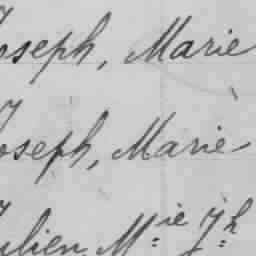 Joseph, Marie
Joseph, Marie
Julien M.ie J.h